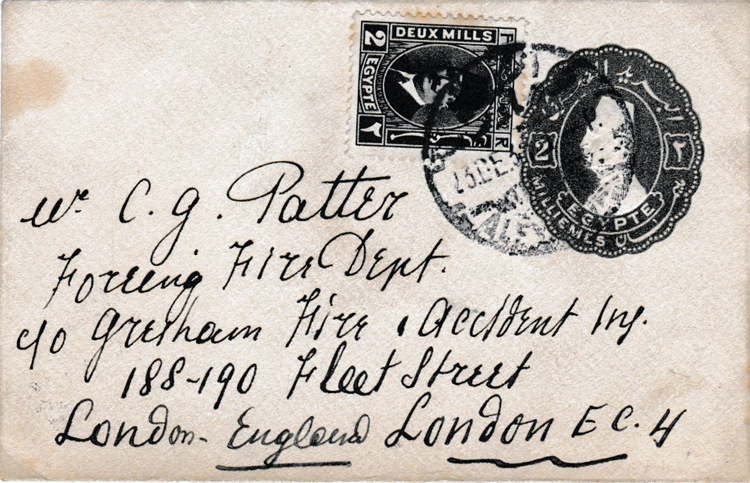 DEUX MILLS
2
EGYPTE
٢
2
EGYPTE
MILLIEMES
٢
23 DE
Mr. C. G. Patter
Foreing Fire Dept.
c/o Gresham Fire & Accident Ins.
188-190 Fleet Street
London - England London E C. 4